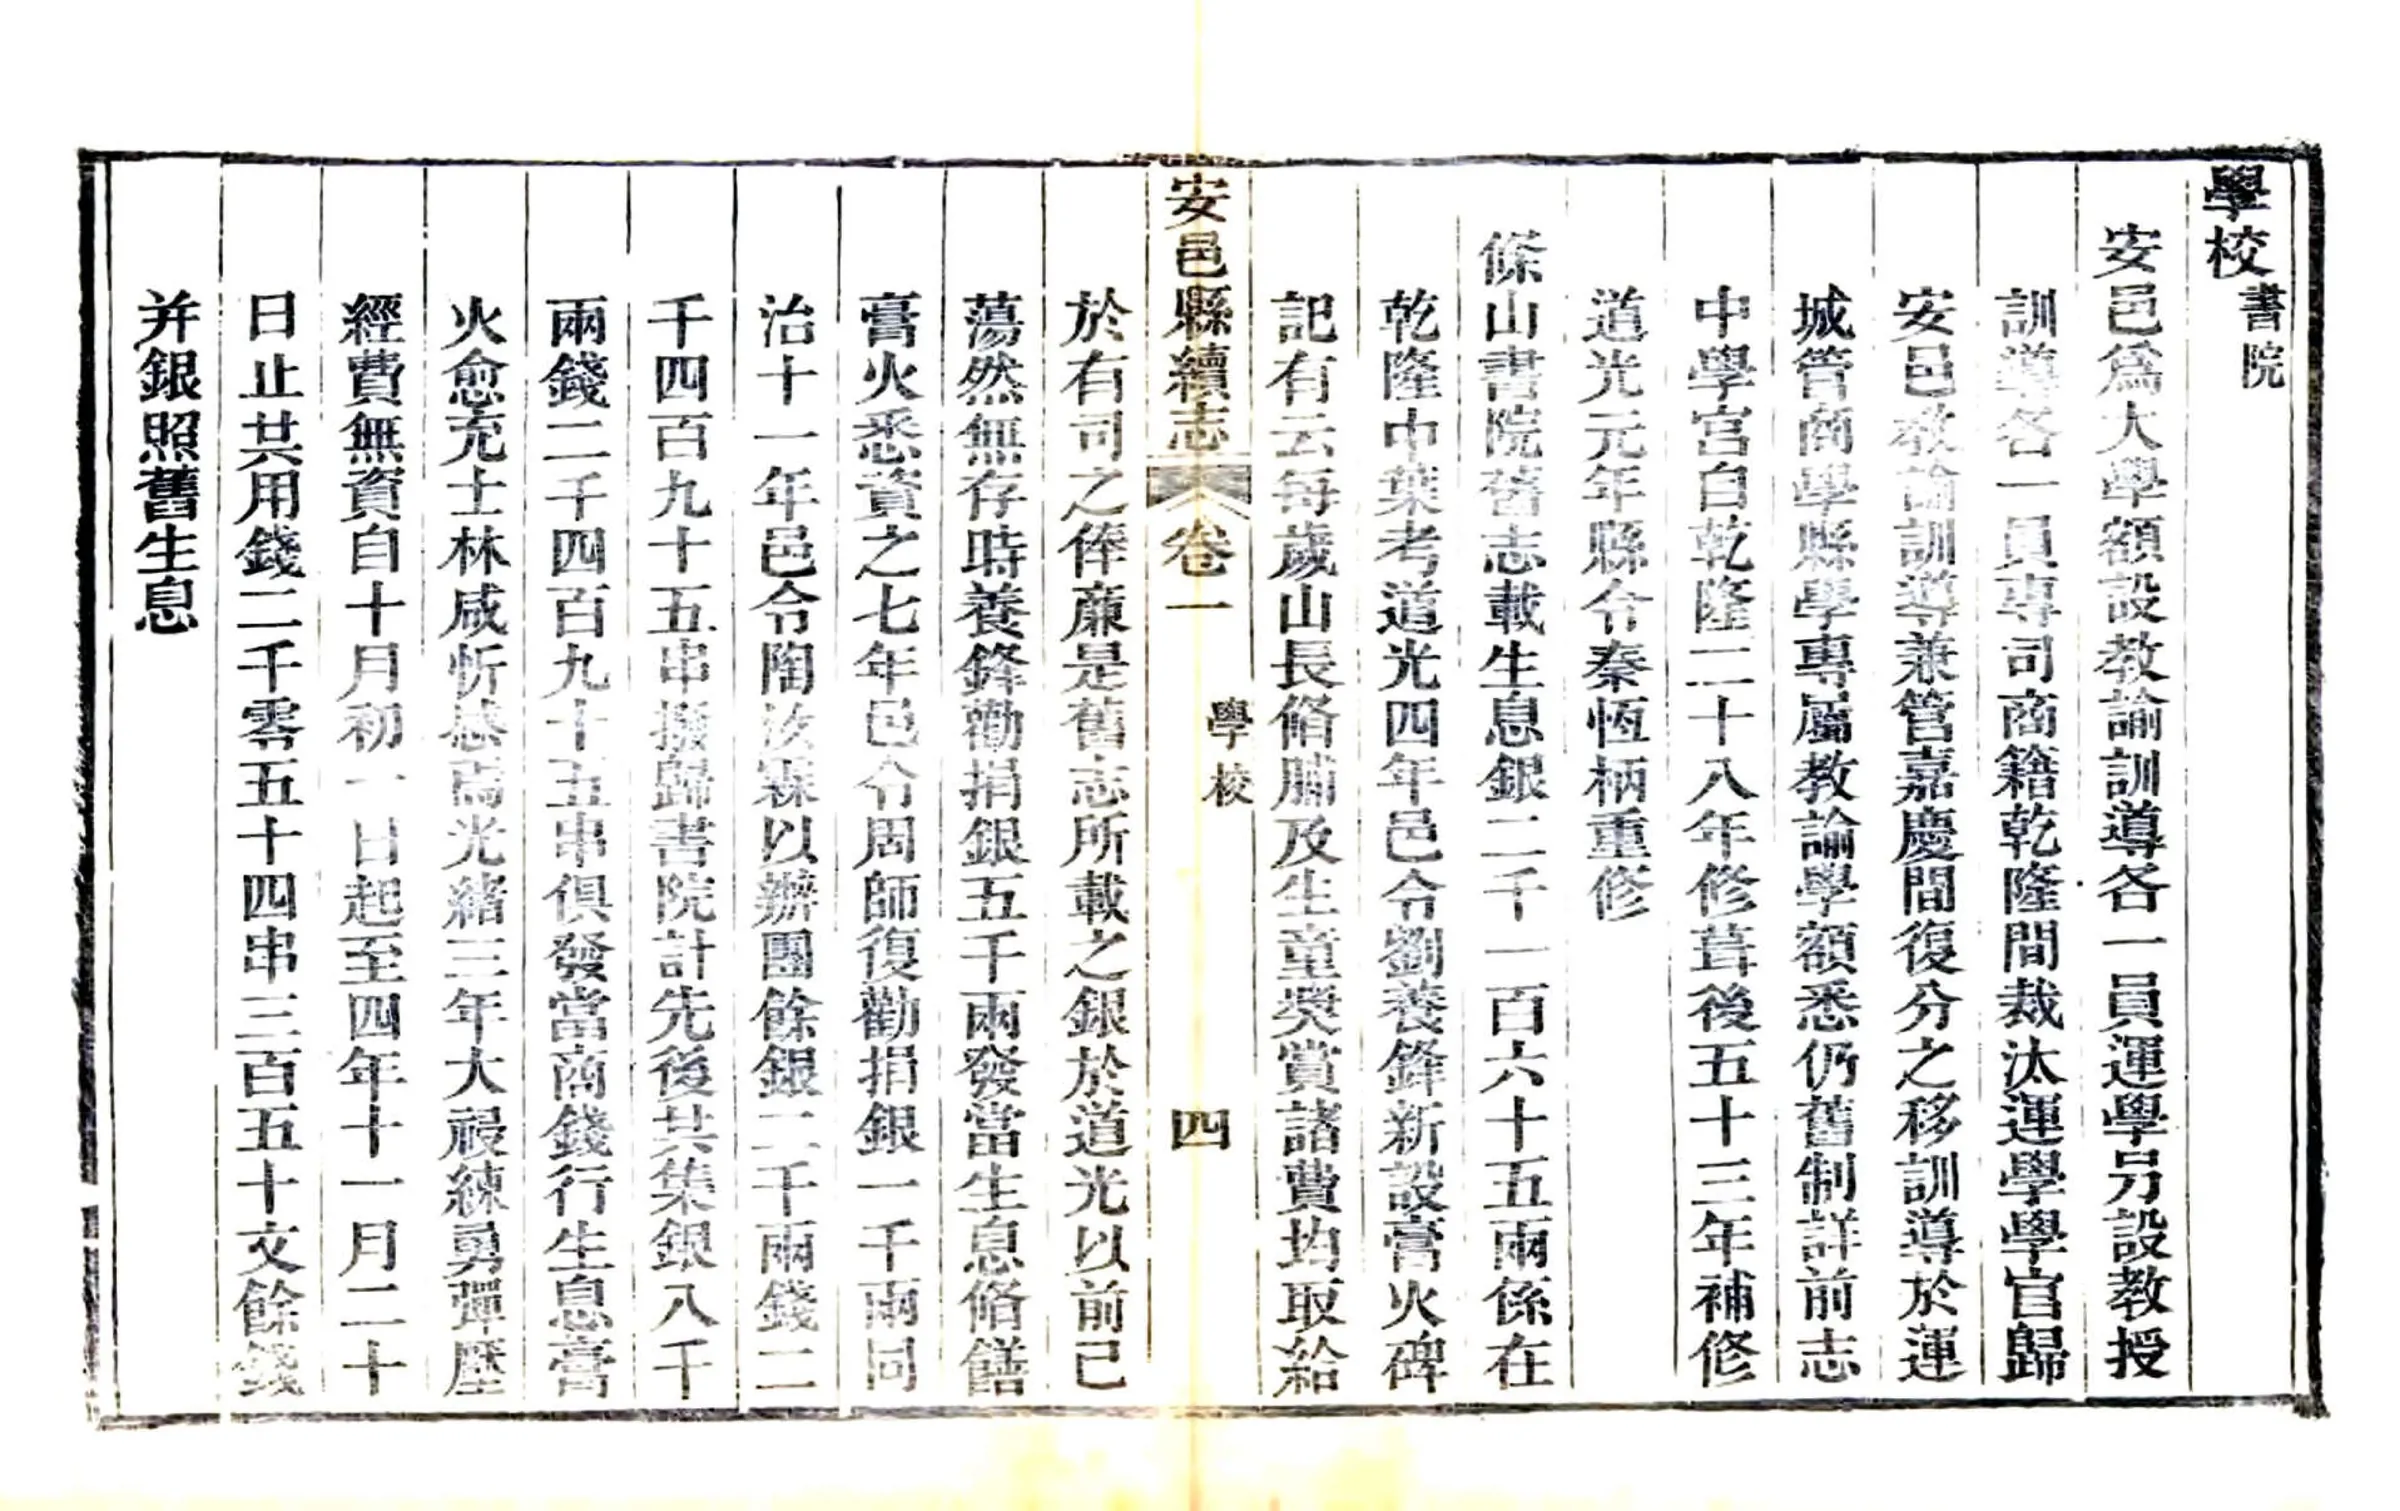 學校書院
安邑爲大學額設教諭訓導各一員運學另設教授
訓導各一員專司商籍乾隆間裁汰運學學官歸
安邑教諭訓導兼管嘉慶間復分之移訓導於運
城管商學縣學專屬教諭學額悉仍舊制詳前志
中學宮自乾隆二十八年修葺後五十三年補修
道光元年縣令秦恆柄重修
條山書院舊志載生息銀二千一百六十五兩係在
乾隆中葉考道光四年邑令劉養鋒新設膏火碑
記有云每歲山長脩脯及生童奬賞諸費均取給
安邑縣續志 卷一 學校 四
於有司之俸廉是舊志所載之銀於道光以前已
蕩然無存時養鋒勸捐銀五千兩發當生息脩饍
膏火悉資之七年邑令周師復勸捐銀一千兩同
治十一年邑令陶汝霖以辦團餘銀二千兩錢二
千四百九十五串撥歸書院計先後共集銀八千
兩錢二千四百九十五串俱發當商錢行生息膏
火愈充士林咸忻感焉光緒三年大祲練勇彈壓
經費無資自十月初一日起至四年十一月二十
日止共用錢二千零五十四串三百五十文餘錢
并銀照舊生息